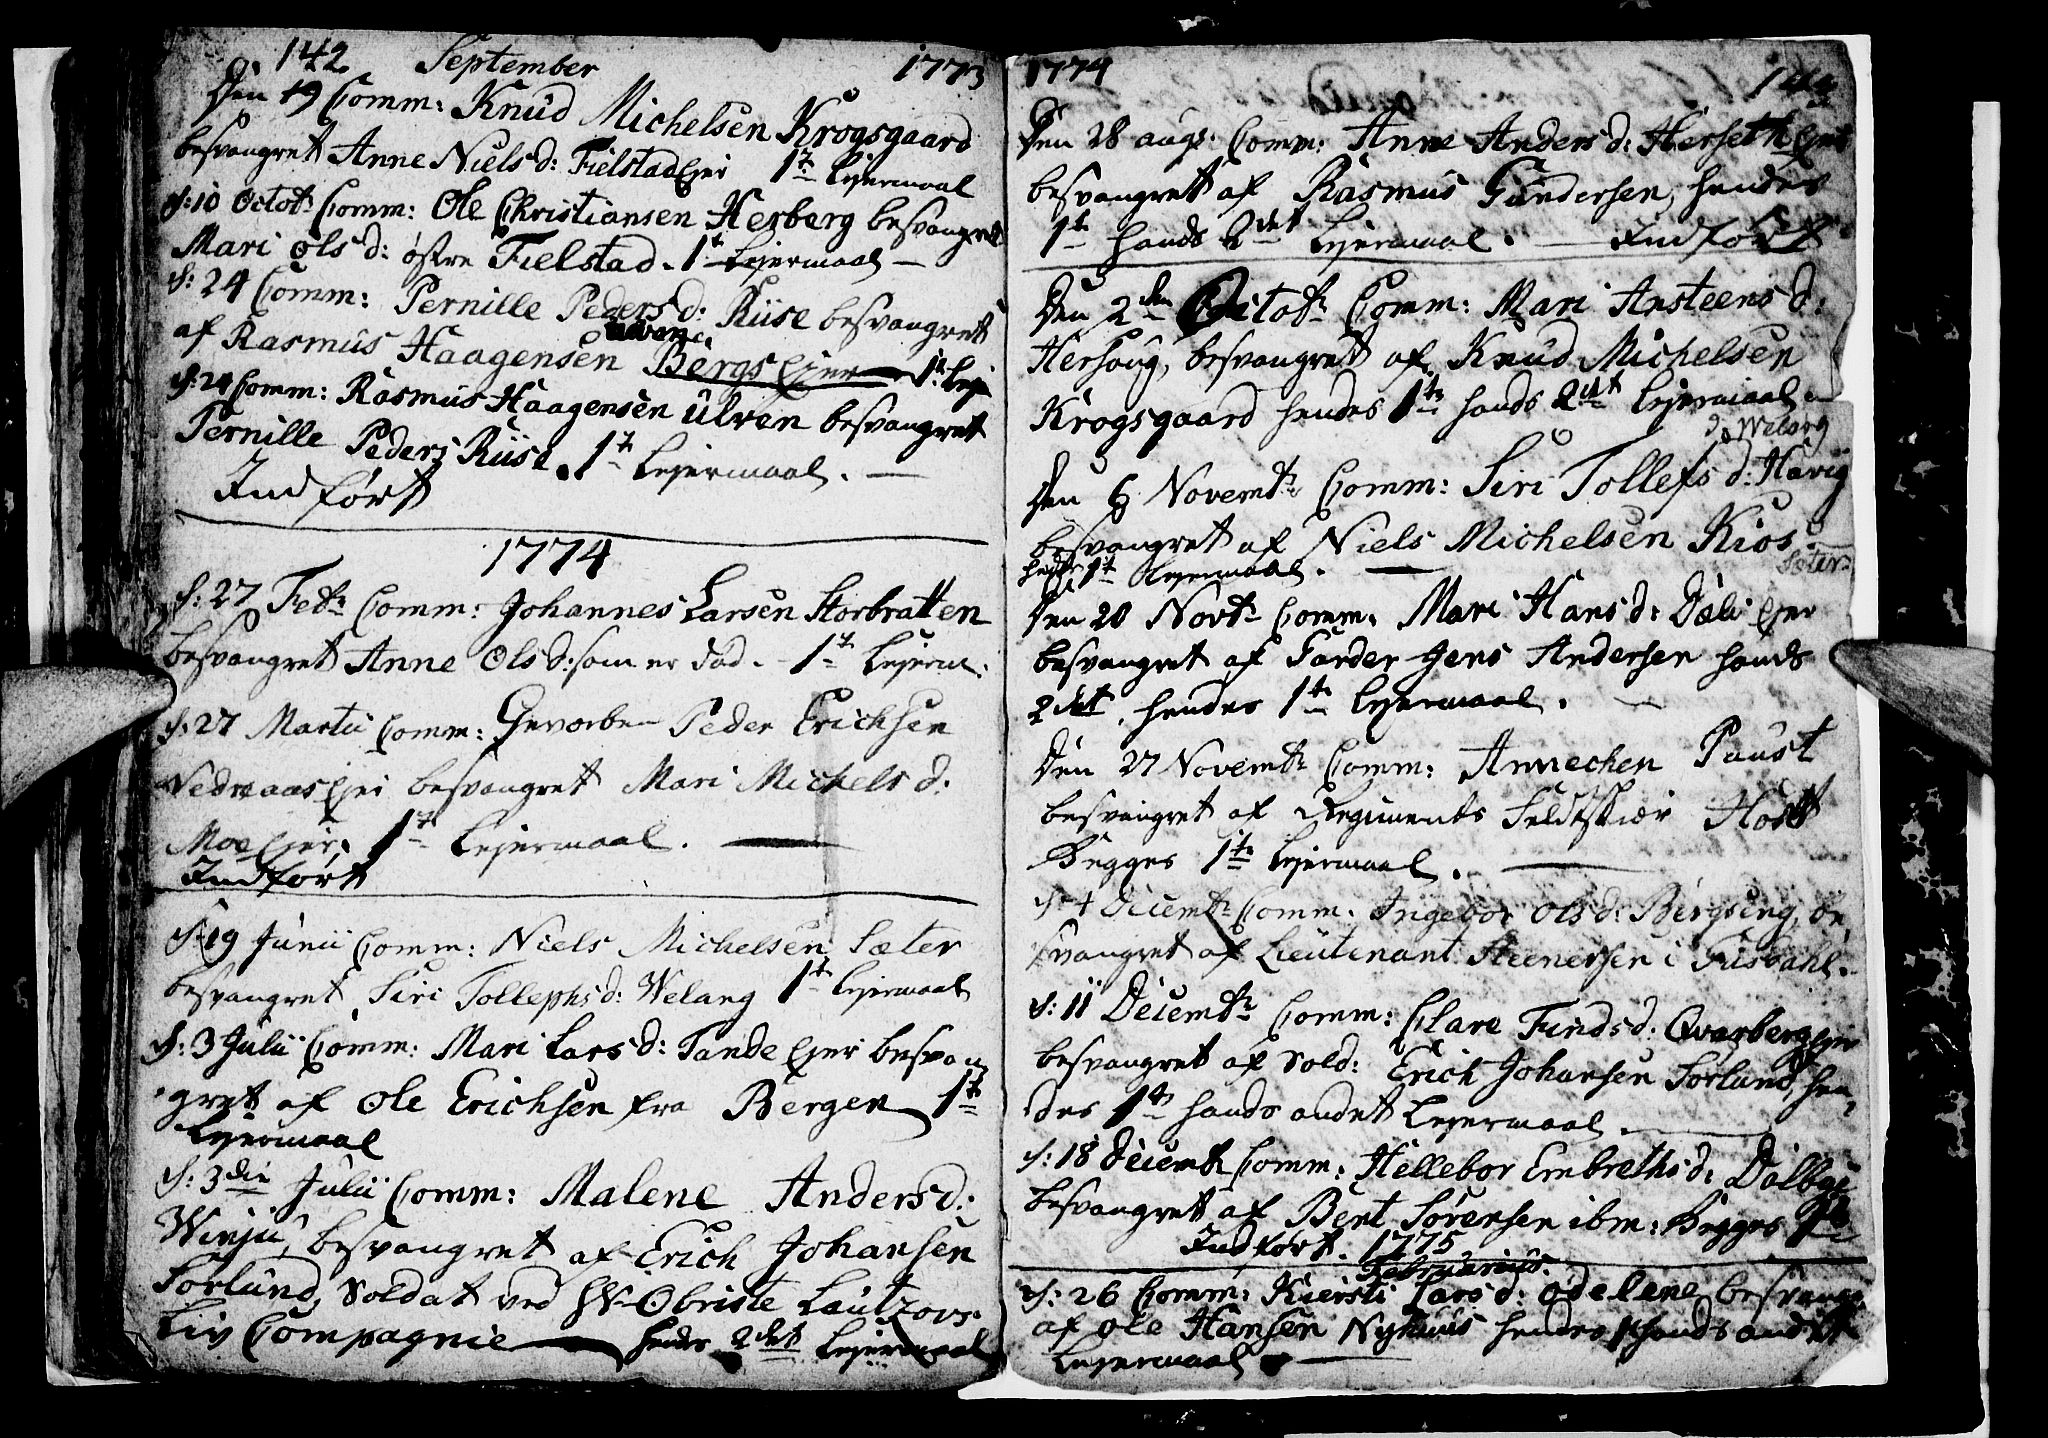 142. September 1773
Den 19 Comm: Knud Michelsen Krogsgaard
besvangret Anne Niels d: Fielstad Ejer 1te Lejermaal
d: 10 Octob Comm: Ole Christiansen Herberg besvangret
Mari Ols d: østre Fielstad. 1t Lejermaal
d: 24 Comm: Pernille Peders d: Riise besvangret
Ulven
af Rasmus Haagensen Bergs Ejer 1t Leje
d: 24 Comm: Rasmus Haagensen Ulven besvangret
Pernille Peders Riise. 1t Lejermaal.
Indført
1774
d: 27 Febr Comm: Johannes Larsen Storbratten
besvangret Anne Ols d: som er død. 1t Lejerm:
d: 27 Martii Comm: Gevorben Peder Erichsen
Nedreaas Ejer besvangret Mari Michels d:
Moe Ejer. 1t Lejermaal.
Indført
d: 19 Junii Comm: Niels Michelsen Sæter
besvangret Siri Tollephs d: Welang 1t Lejermaal
d: 3 Julii Comm: Mari Lars d: Tande Ejer besvan
gret af Ole Erichsen fra Bergen 1te
Lejermaal
d: 3die Julii Comm: Malene Anders d:
Winju, besvangret af Erich Johansen
Sorlund, Soldat ved Obriste Lautzows
Liv Compagnie hands 2det Lejermaal
1774 143
Den 28 aug: Comm: Anne Anders d: Herseth Ejer
besvangret af Rasmus Gundersen, hendes
1te hands 2det Lejermaal. Indført
Den 2den Octob Comm: Mari Ansteens d:
Hersoug, besvangret af Knud Michelsen
Krogsgaard hendes 1te hands 2det Lejermaal
d: Welang
Den 6 Novembr Comm: Siri Tollefs d: Havig
besvangret af Niels Michelsen Kios
Sæter
hendes 1t Lejermaal.
Den 20 Novbr Comm: Mari Hans d: Dæli Ejer
besvangret af Farder Jens Andersen hands
2det, hendes 1te Lejermaal.
Den 27 Novembr Comm: Annechen Paust
besvangret af Regiments Feldtskiær Host
Begges 1te Lejermaal.
d: 4 Decembr Comm: Ingebor Ols d: Bergseng, be,
svangret af Lieutenant Steenersen i Fusdahl.
d: 11 Decembr Comm: Clare Finds d: Qvarberg Ejer
besvangret af Sold: Erich Johansen Sorlund, hen,
des 1te hands andet Lejermaal.
d: 18 Decembr Comm: Hellebor Embreths d: Dolbye
besvangret af Bent Sørensen ibm: Begges 1te
Indført. 1775
Februarius.
d: 26 Comm: Kiersti Lars d: Ødelene besvang
af Ole Hansen Nyhuus hendes 1 hands andet
Lejermaal